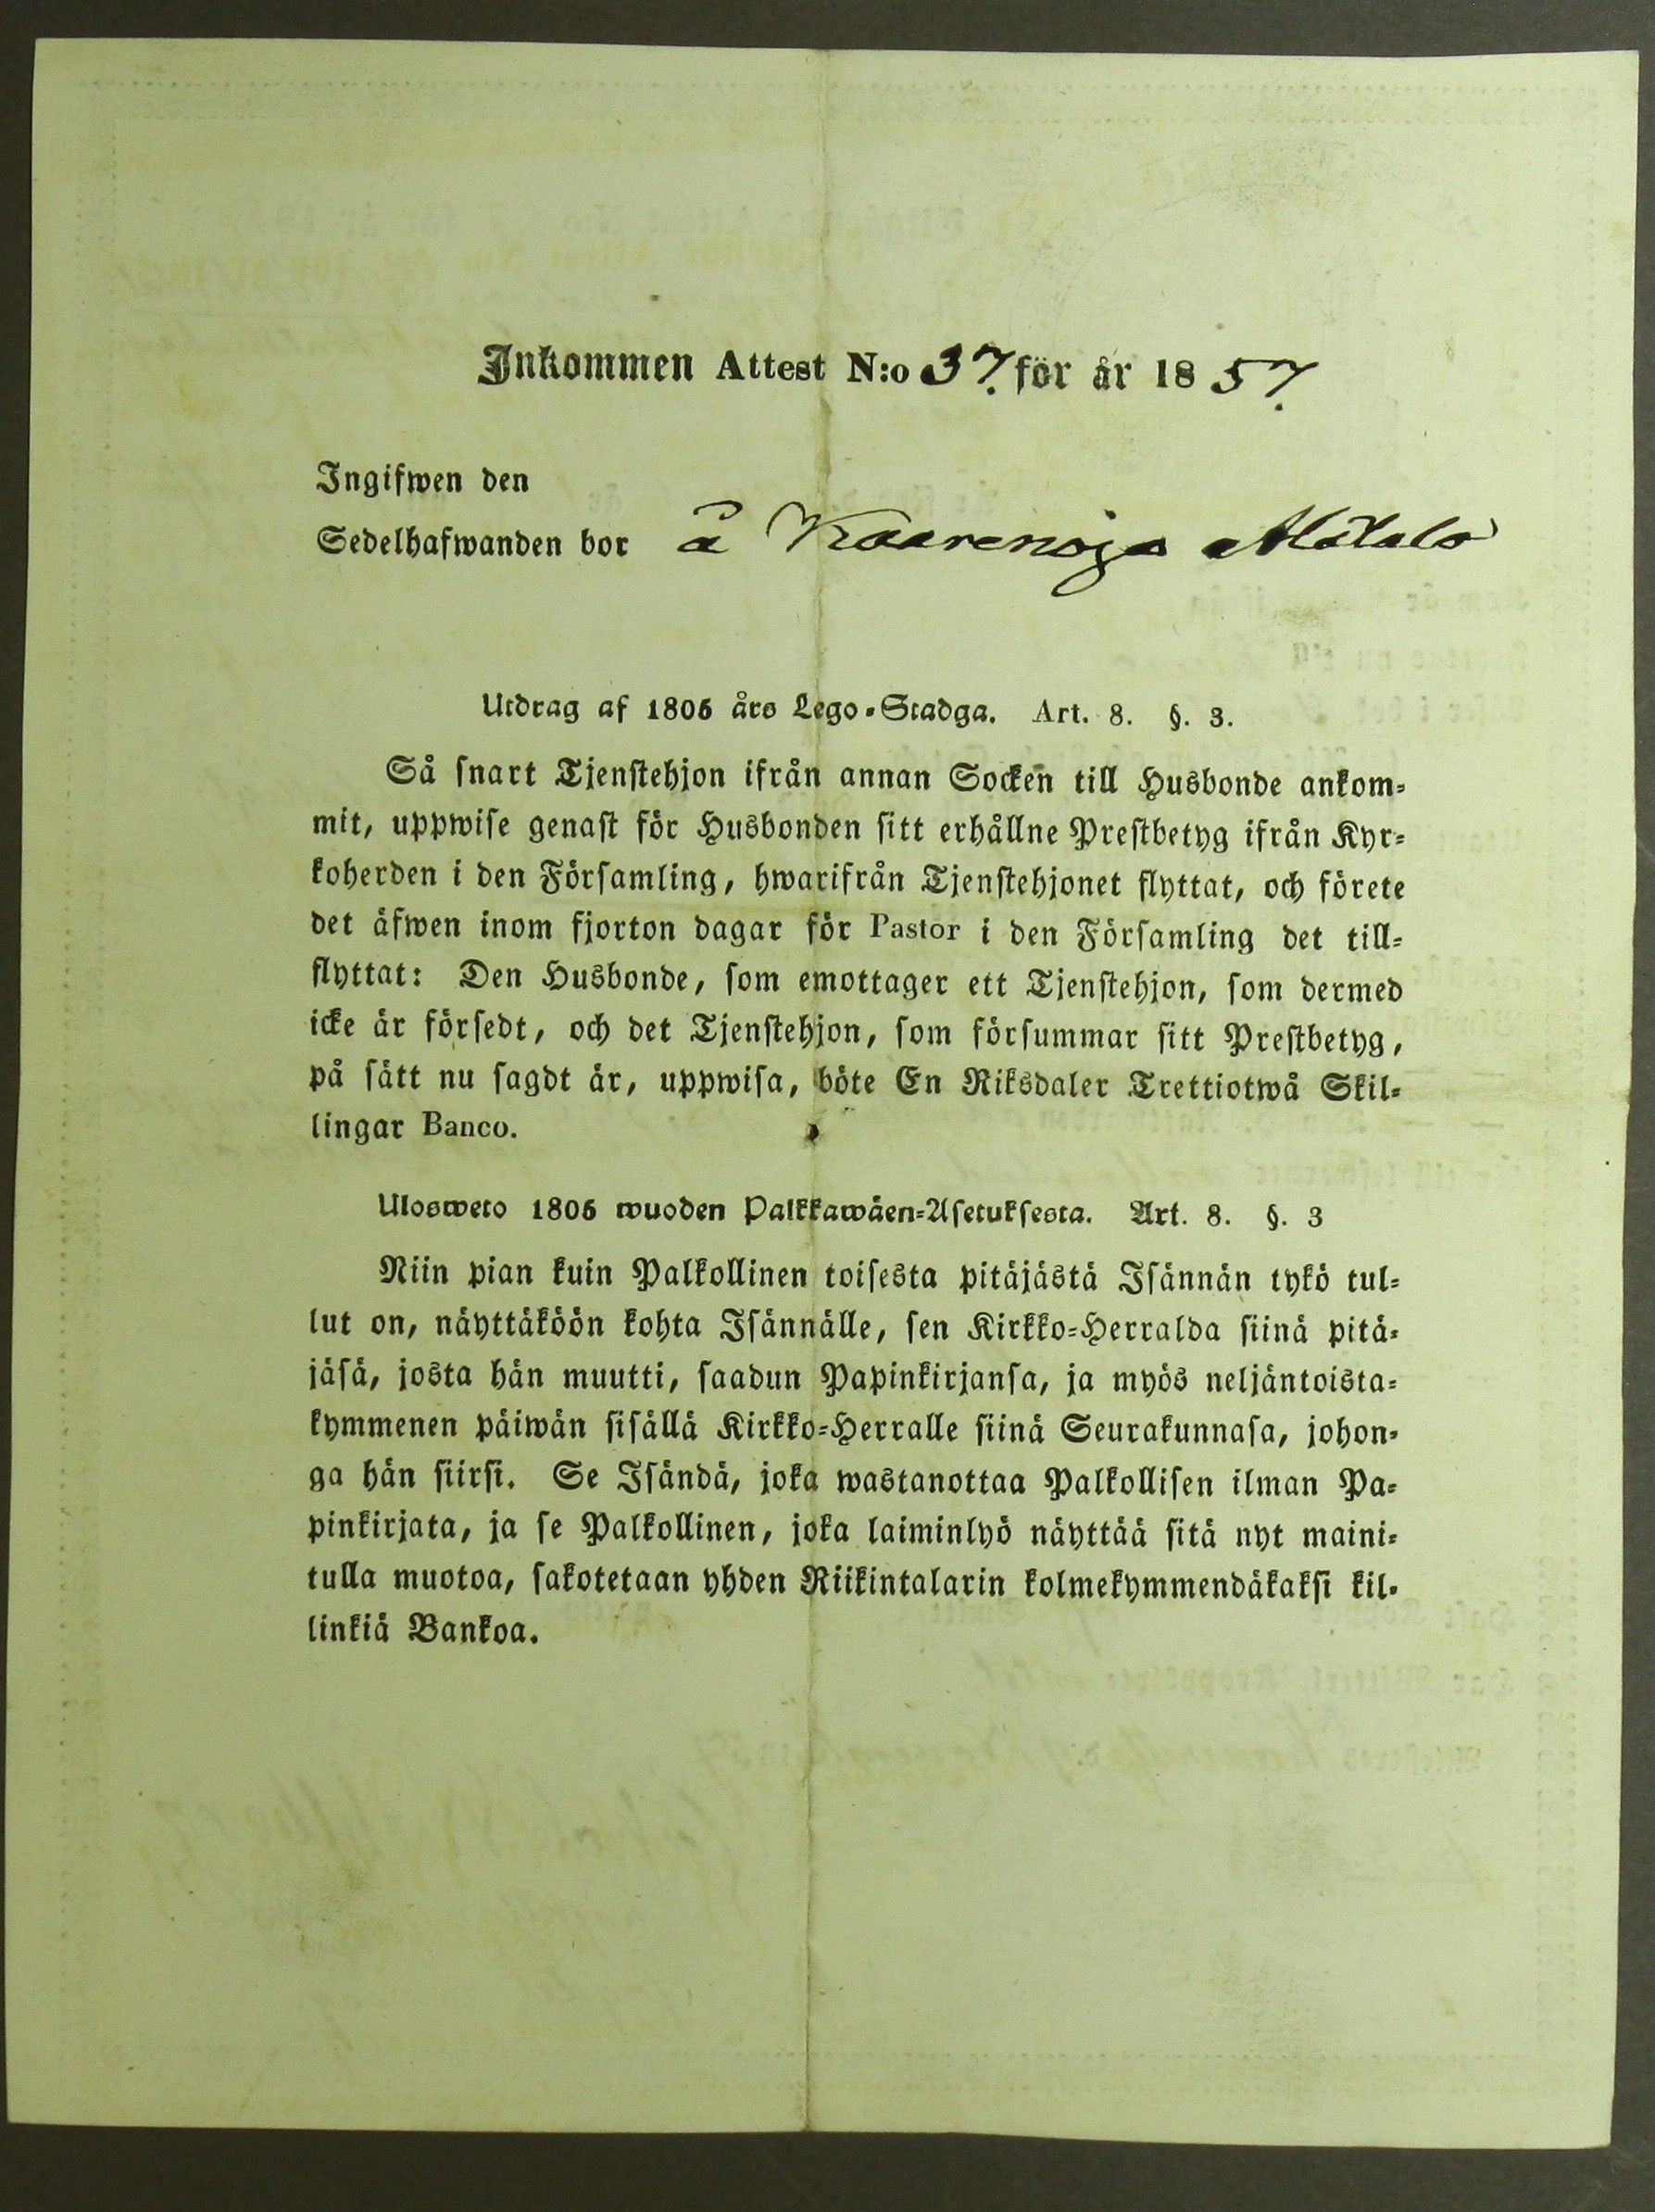 Inkommen Attest N:o 37. för år 1857.
Ingifwen den
Sedelhafwanden bor å Kaarenoja Alitalo
Utdrag af 1805 års Lego-Stadga. Art. 8. §. 3.
Så snart Tjenstehjon ifrån annan Socken till Husbonde ankom-
mit, uppwise genast för Husbonden sitt erhållne Prestbetyg ifrån Kyr-
koherden i den Församling, hwarifrån Tjenstehjonet flyttat, och förete
det äfwen inom fjorton dagar för Pastor i den Församling det till-
flyttat: Den Husbonde, som emottager ett Tjenstehjon, som dermed
icke är försedt, och det Tjenstehjon, som försummar sitt Prestbetyg,
på sätt nu sagdt är, uppwisa, böte En Riksdaler Trettiotwå Skil-
lingar Banco.
Ulosweto 1805 wuoden Palkkawäen-Asetuksesta. Art. 8. §. 3
Niin pian kuin Palkollinen toisesta pitäjästä Isännän tykö tul-
lut on, näyttäköön kohta Isännälle, sen Kirkko-Herralda siinä pitä-
jäsä, josta hän muutti, saadun Papinkirjansa, ja myös neljäntoista-
kymmenen päiwän sisällä Kirkko-Herralle siinä Seurakunnasa, johon-
ga hän siirsi. Se Isändä, joka wastanottaa Palkollisen ilman Pa-
pinkirjata, ja se Palkollinen, joka laiminlyö näyttää sitä nyt maini-
tulla muotoa, sakotetaan yhden Riikintalarin kolmekymmendäkaksi kil-
linkiä Bankoa.